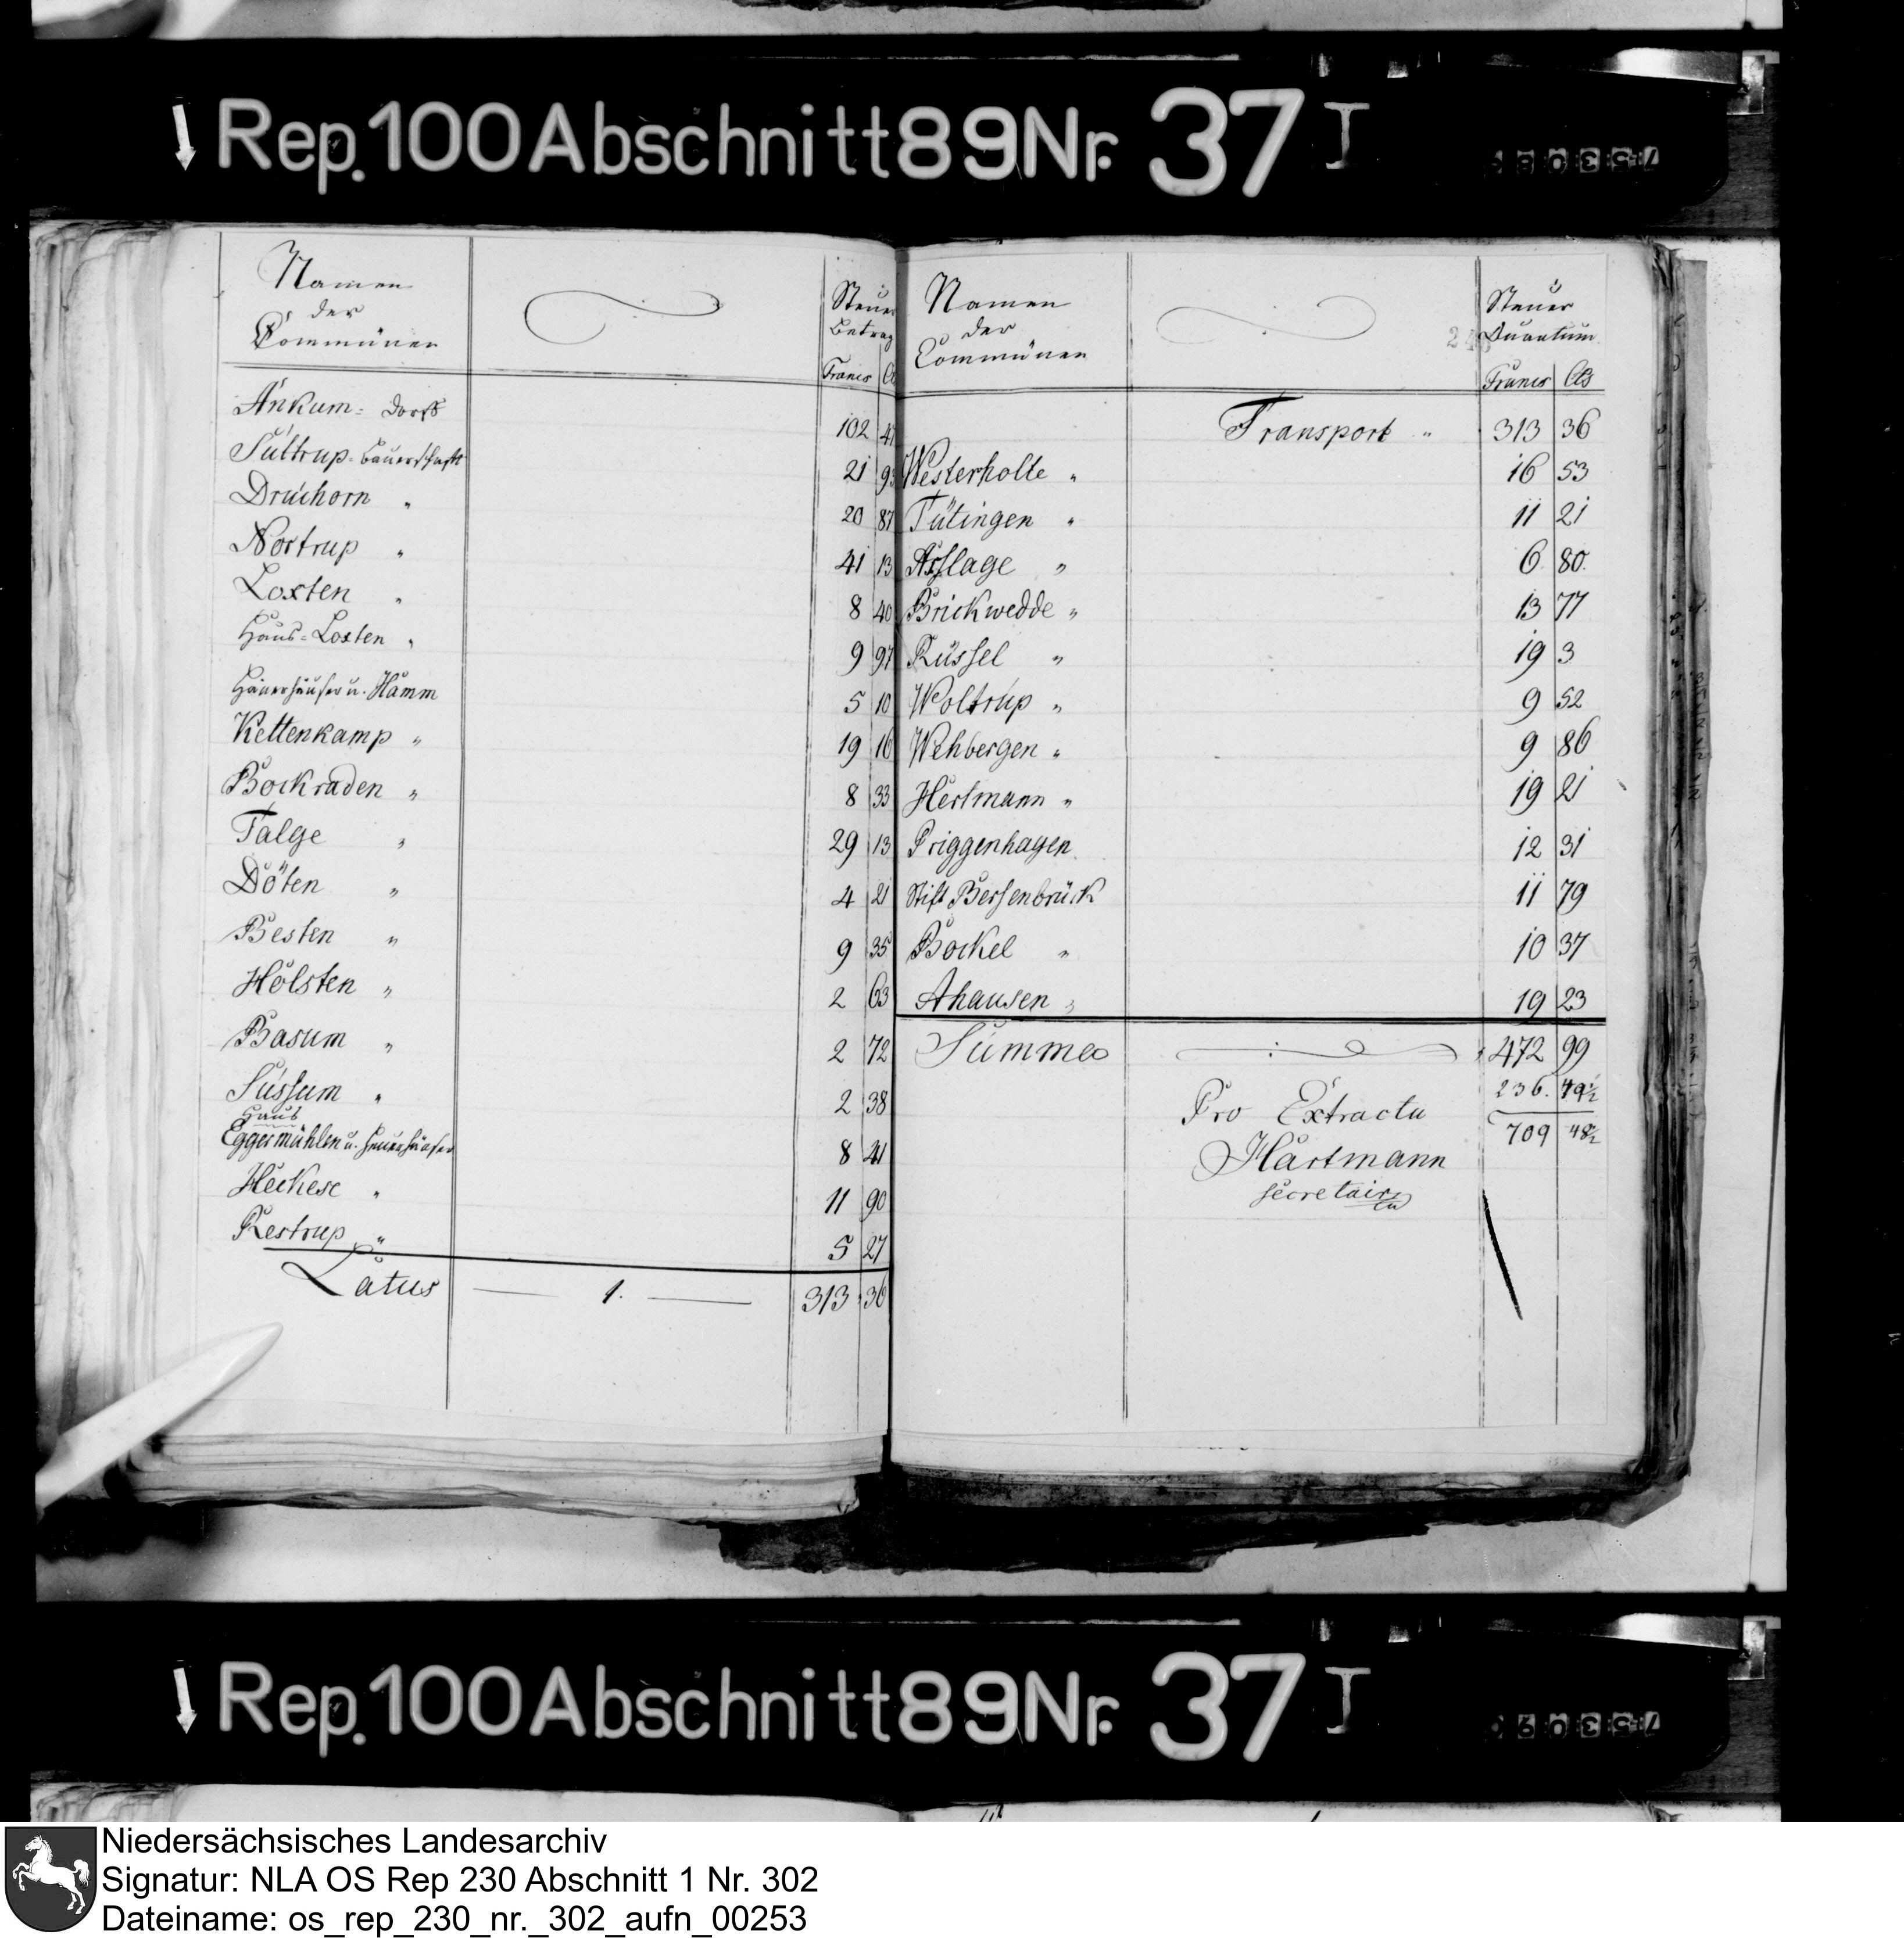 Rep. 100 Abschnitt 89 Nr. 37 I
Namen
der
Commünen
Steuer
Betrag
Francs
Ankum= Dorff 102 47
Suttrup= Bauerschaft 21 93
Druchorn " 20 87
Nortrup " 41 13
Loxten " 8 40
Haus=Loxten " 9 97
Häuerhäuser u. Hamm 5 10
Kettenkamp " 19 16
Bockraden " 8 33
Talge " 29 13
Döten " 4 21
Besten " 9 35
Holsten " 2 63
Basum " 2 72
Sussum " 2 38
Haus
Eggermühlen u. Heuerhäuser 8 41
Heckese " 11 90
Restrup " 5 27
Latus 1. 313 36
Namen
der
Commünen
Steuer
Quantum
Francs Cts
Transport " 313 36
Westerholte " 16 53
Tütingen " 11 21
Asslage " 6 80
Brickwedde " 13 77
Russel " 19 3
Woltrup " 9 52
Wehbergen " 9 86
Hertmann " 19 21
Priggenhagen 12 31
Stift Bersenbrück 11 79
Bockel " 10 37
Ahausen " 19 23
Summa 472 99
236. 49½
709 48½
Pro Extractu
Hartmann
secretair
Rep. 100 Abschnitt 89 Nr. 37 I
Niedersächsisches Landesarchiv
Signatur: NLA OS Rep 230 Abschnitt 1 Nr. 302
Dateiname: os_rep_230_nr._302_aufn_00253